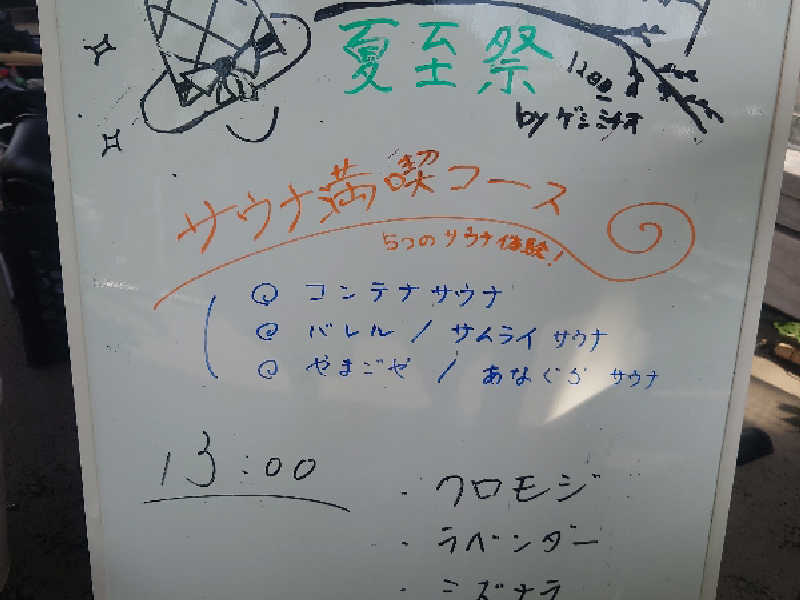 夏至祭
1200
by ゲシミチオ
サウナ満喫コース
5つのサウナ体験!
◎ コンテナサウナ
◎ バレル / サムライ サウナ
◎ やまごや / あなぐら サウナ
13:00
・クロモジ
・ラベンダー
・ミズナラ